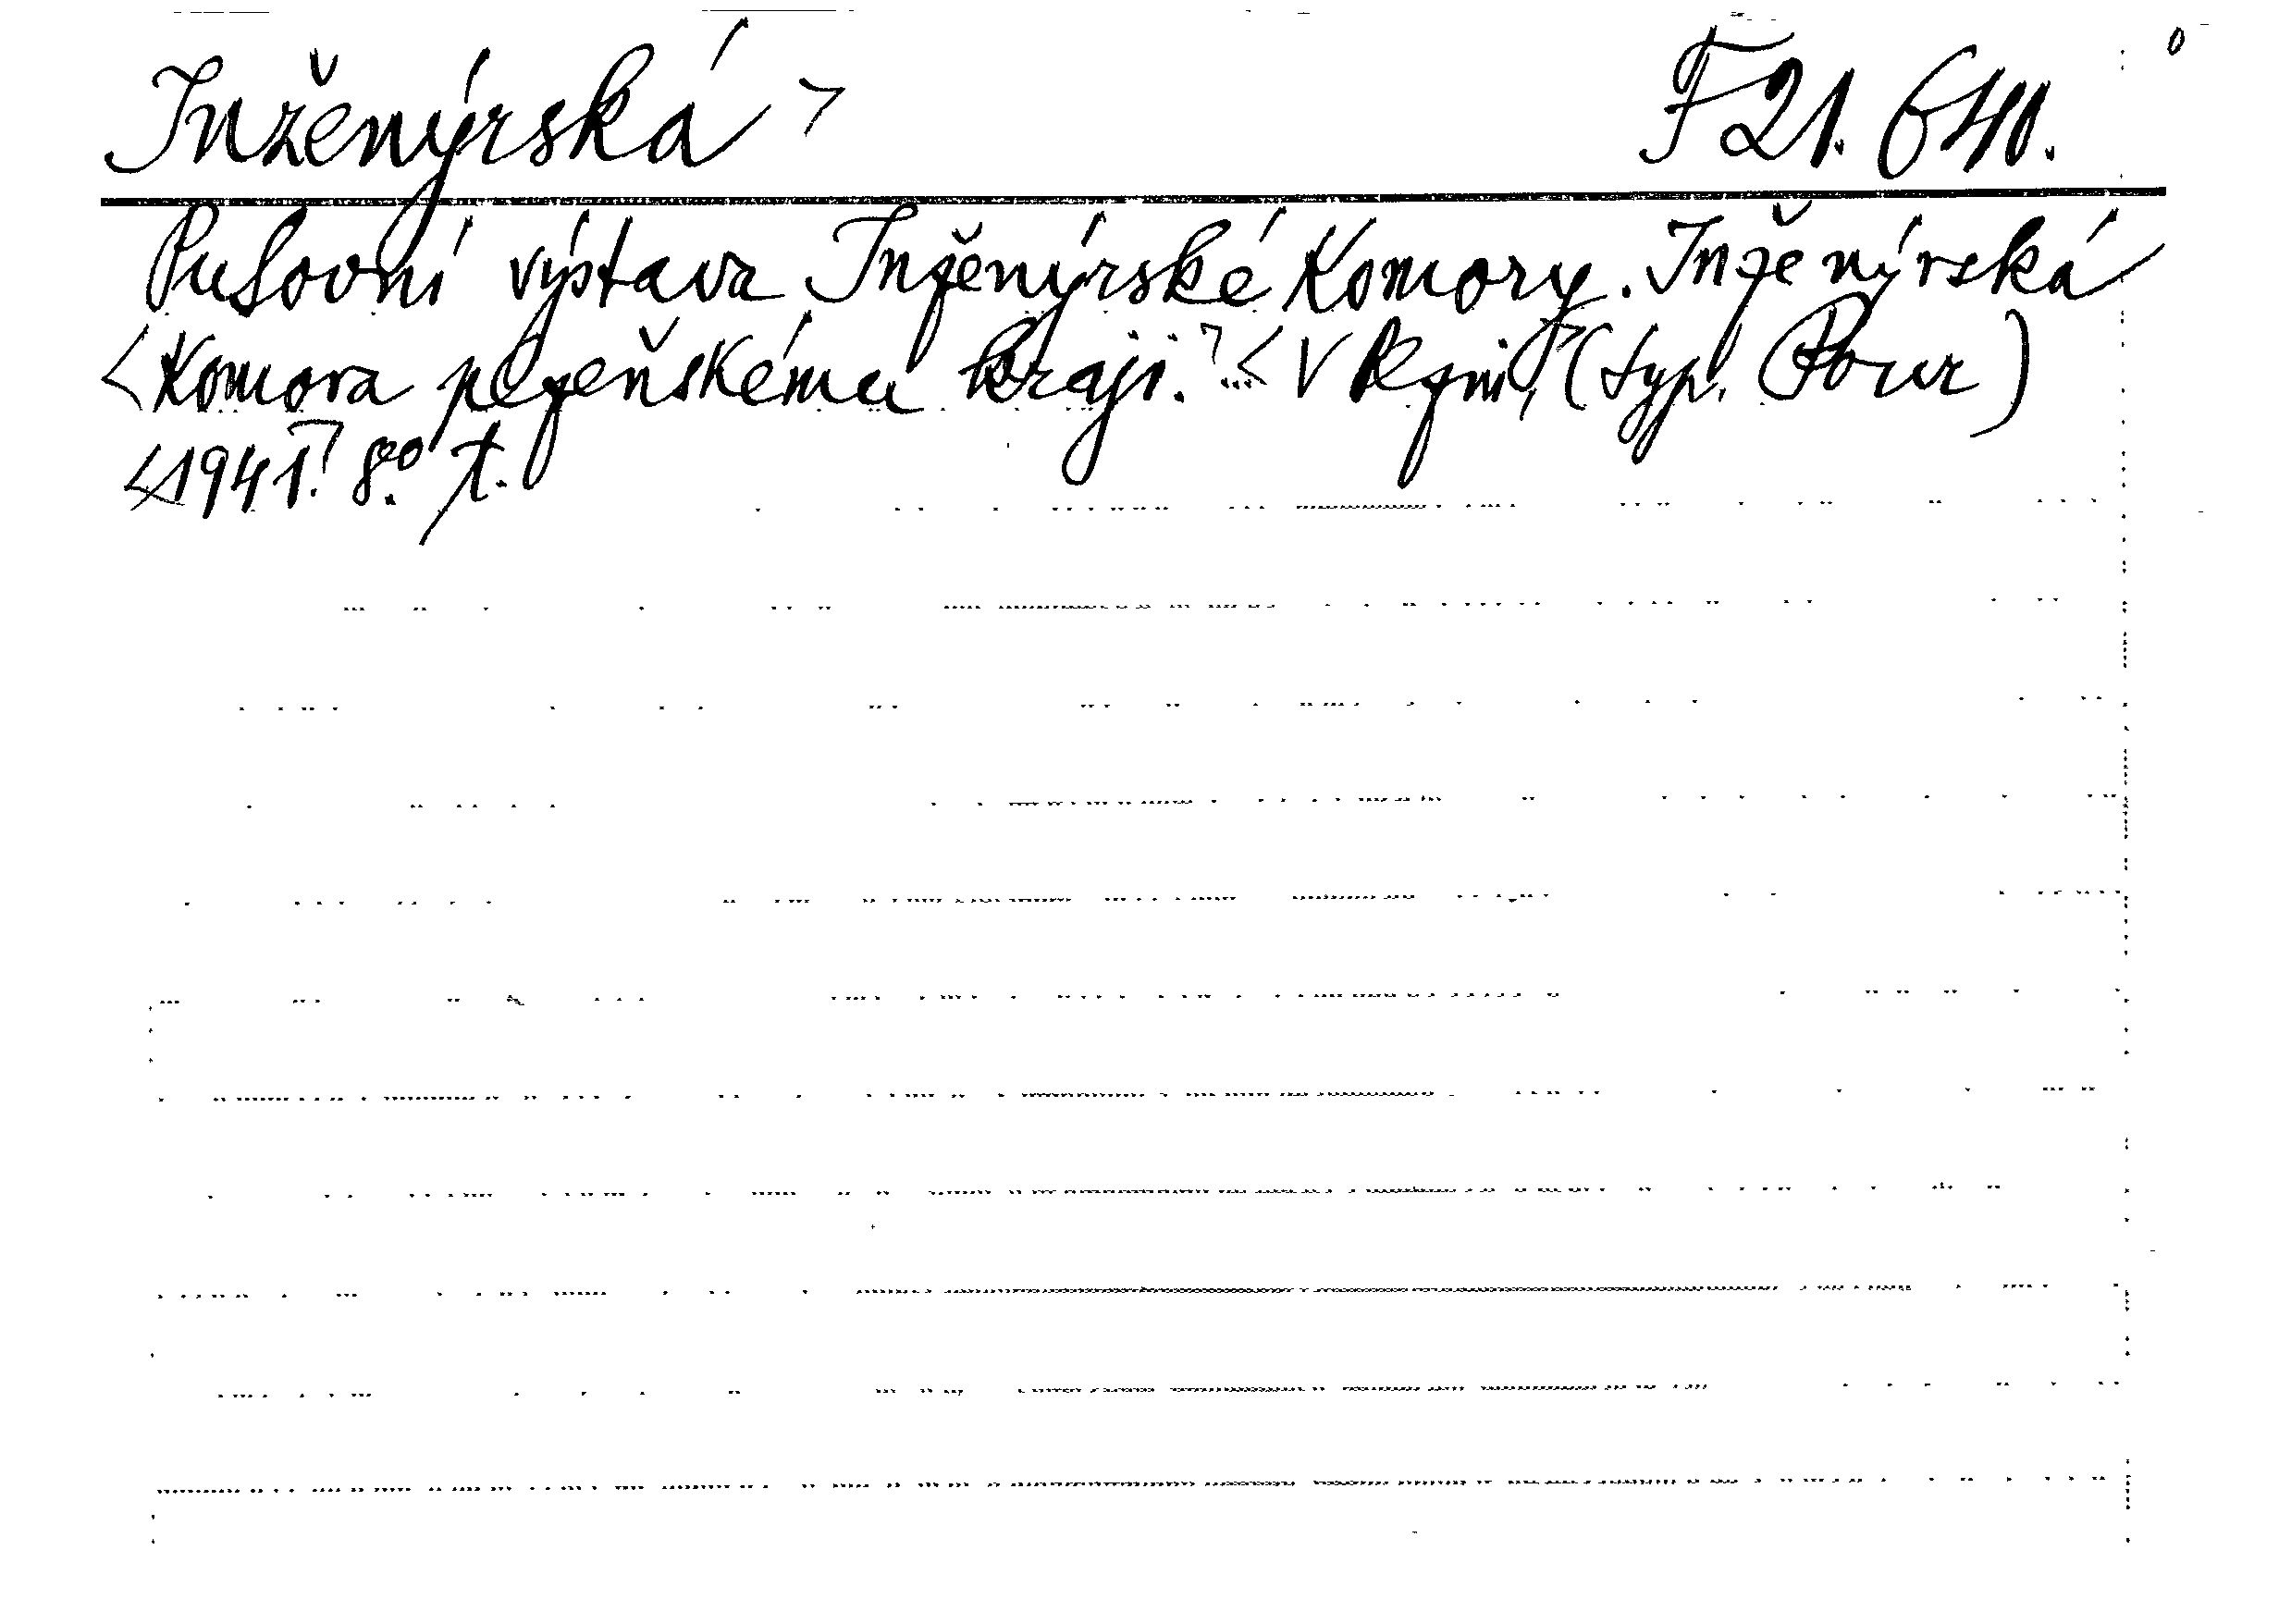 Inženýrská ⌝ F 21. 640.
Putovní výstava Inženýrské Komory. Inženýrská
<Komora plzeňskému kraji.⌝ ...< V Plzni, ⌝ (typ. Pour)
<1941.⌝ 8° t.